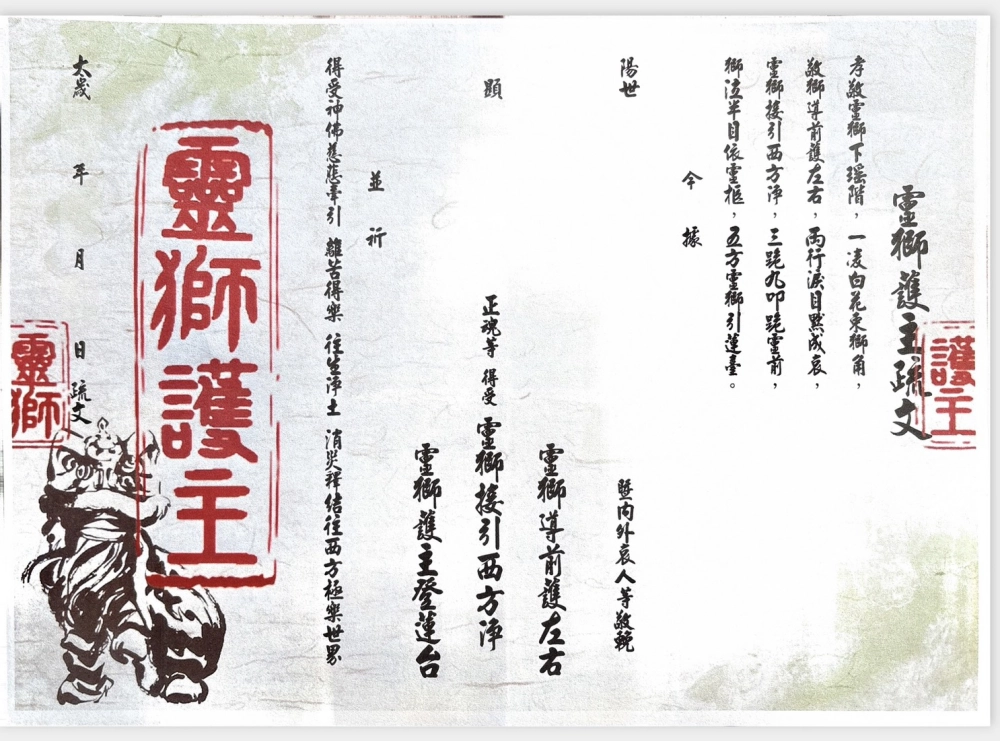 護主
靈獅護主疏文
孝敬靈獅下瑤階，一凌白花束獅角，
敬獅導前護左右，兩行淚目黙成哀，
靈獅接引西方淨，三跪九叩跪靈前，
獅泣半目依靈柩，五方靈獅引蓮臺。
今據
陽世 暨內外哀人等敬輓
靈獅導前護左右
顯 正魂等 得受 靈獅接引西方淨
靈獅護主登蓮台
並祈
得受神佛慈悲牽引 離苦得樂 往生淨土 消災釋結往西方極樂世界
靈獅護主
太歲 年 月 日 疏文
靈獅